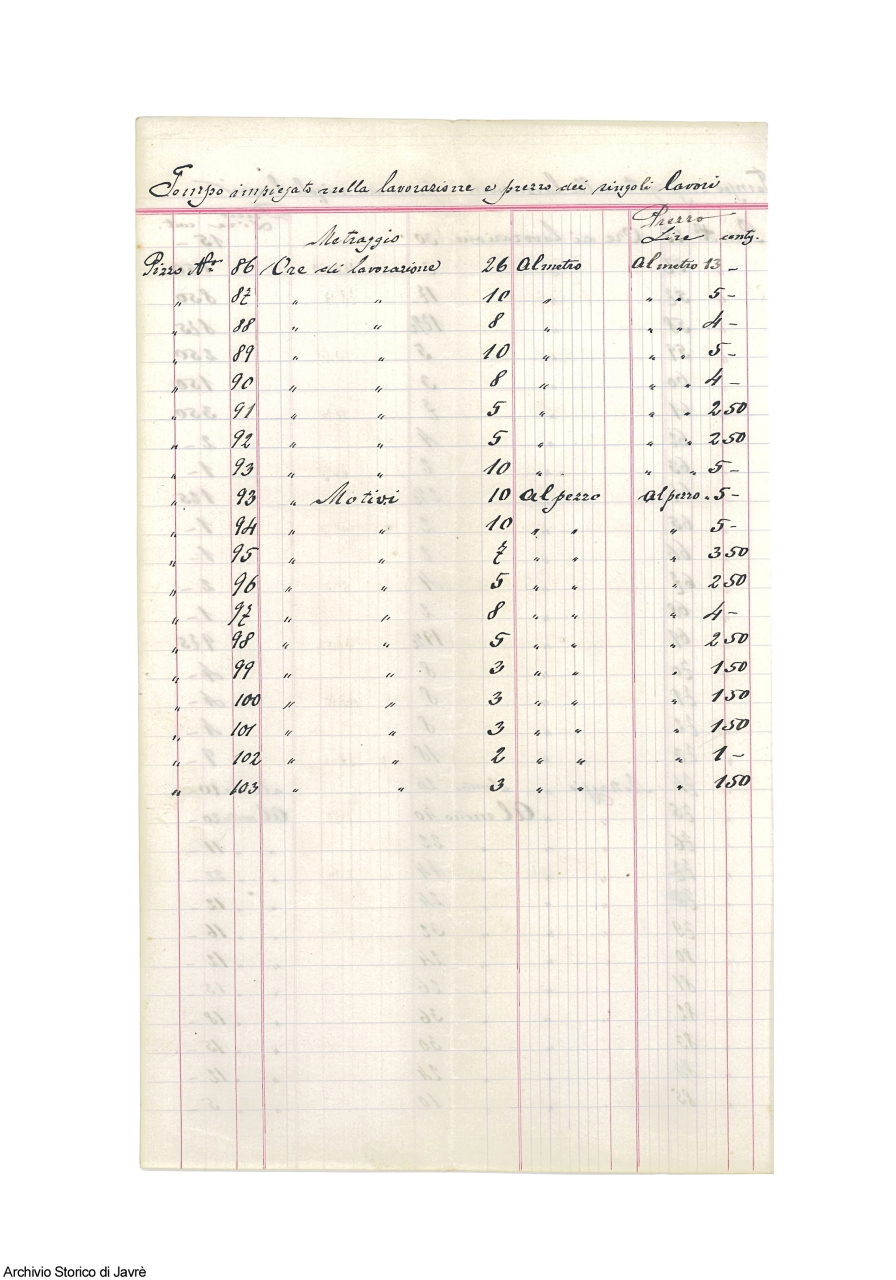 Tempo impiegato nella lavorazione e prezzo dei singoli lavori
Metraggio Prezzo
Lire centy.
Pizzo Nr. 86 Ore di lavorazione 26 Al metro Al metro 13 –
„ 87 „ „ 10 „ „ „ 5 –
„ 88 „ „ 8 „ „ „ 4 –
„ 89 „ „ 10 „ „ „ 5 –
„ 90 „ „ 8 „ „ „ 4 –
„ 91 „ „ 5 „ „ „ 2 50
„ 92 „ „ 5 „ „ „ 2 50
„ 93 „ „ 10 „ „ „ 5 –
„ 93 „ Motivi 10 Al pezzo al pezzo „ 5 –
„ 94 „ „ 10 „ „ „ 5 –
„ 95 „ „ 7 „ „ „ 3 50
„ 96 „ „ 5 „ „ „ 2 50
„ 97 „ „ 8 „ „ „ 4 –
„ 98 „ „ 5 „ „ „ 2 50
„ 99 „ „ 3 „ „ „ 1 50
„ 100 „ „ 3 „ „ „ 1 50
„ 101 „ „ 3 „ „ „ 1 50
„ 102 „ „ 2 „ „ „ 1 –
„ 103 „ „ 3 „ „ „ 1 50
Archivio Storico di Javrè